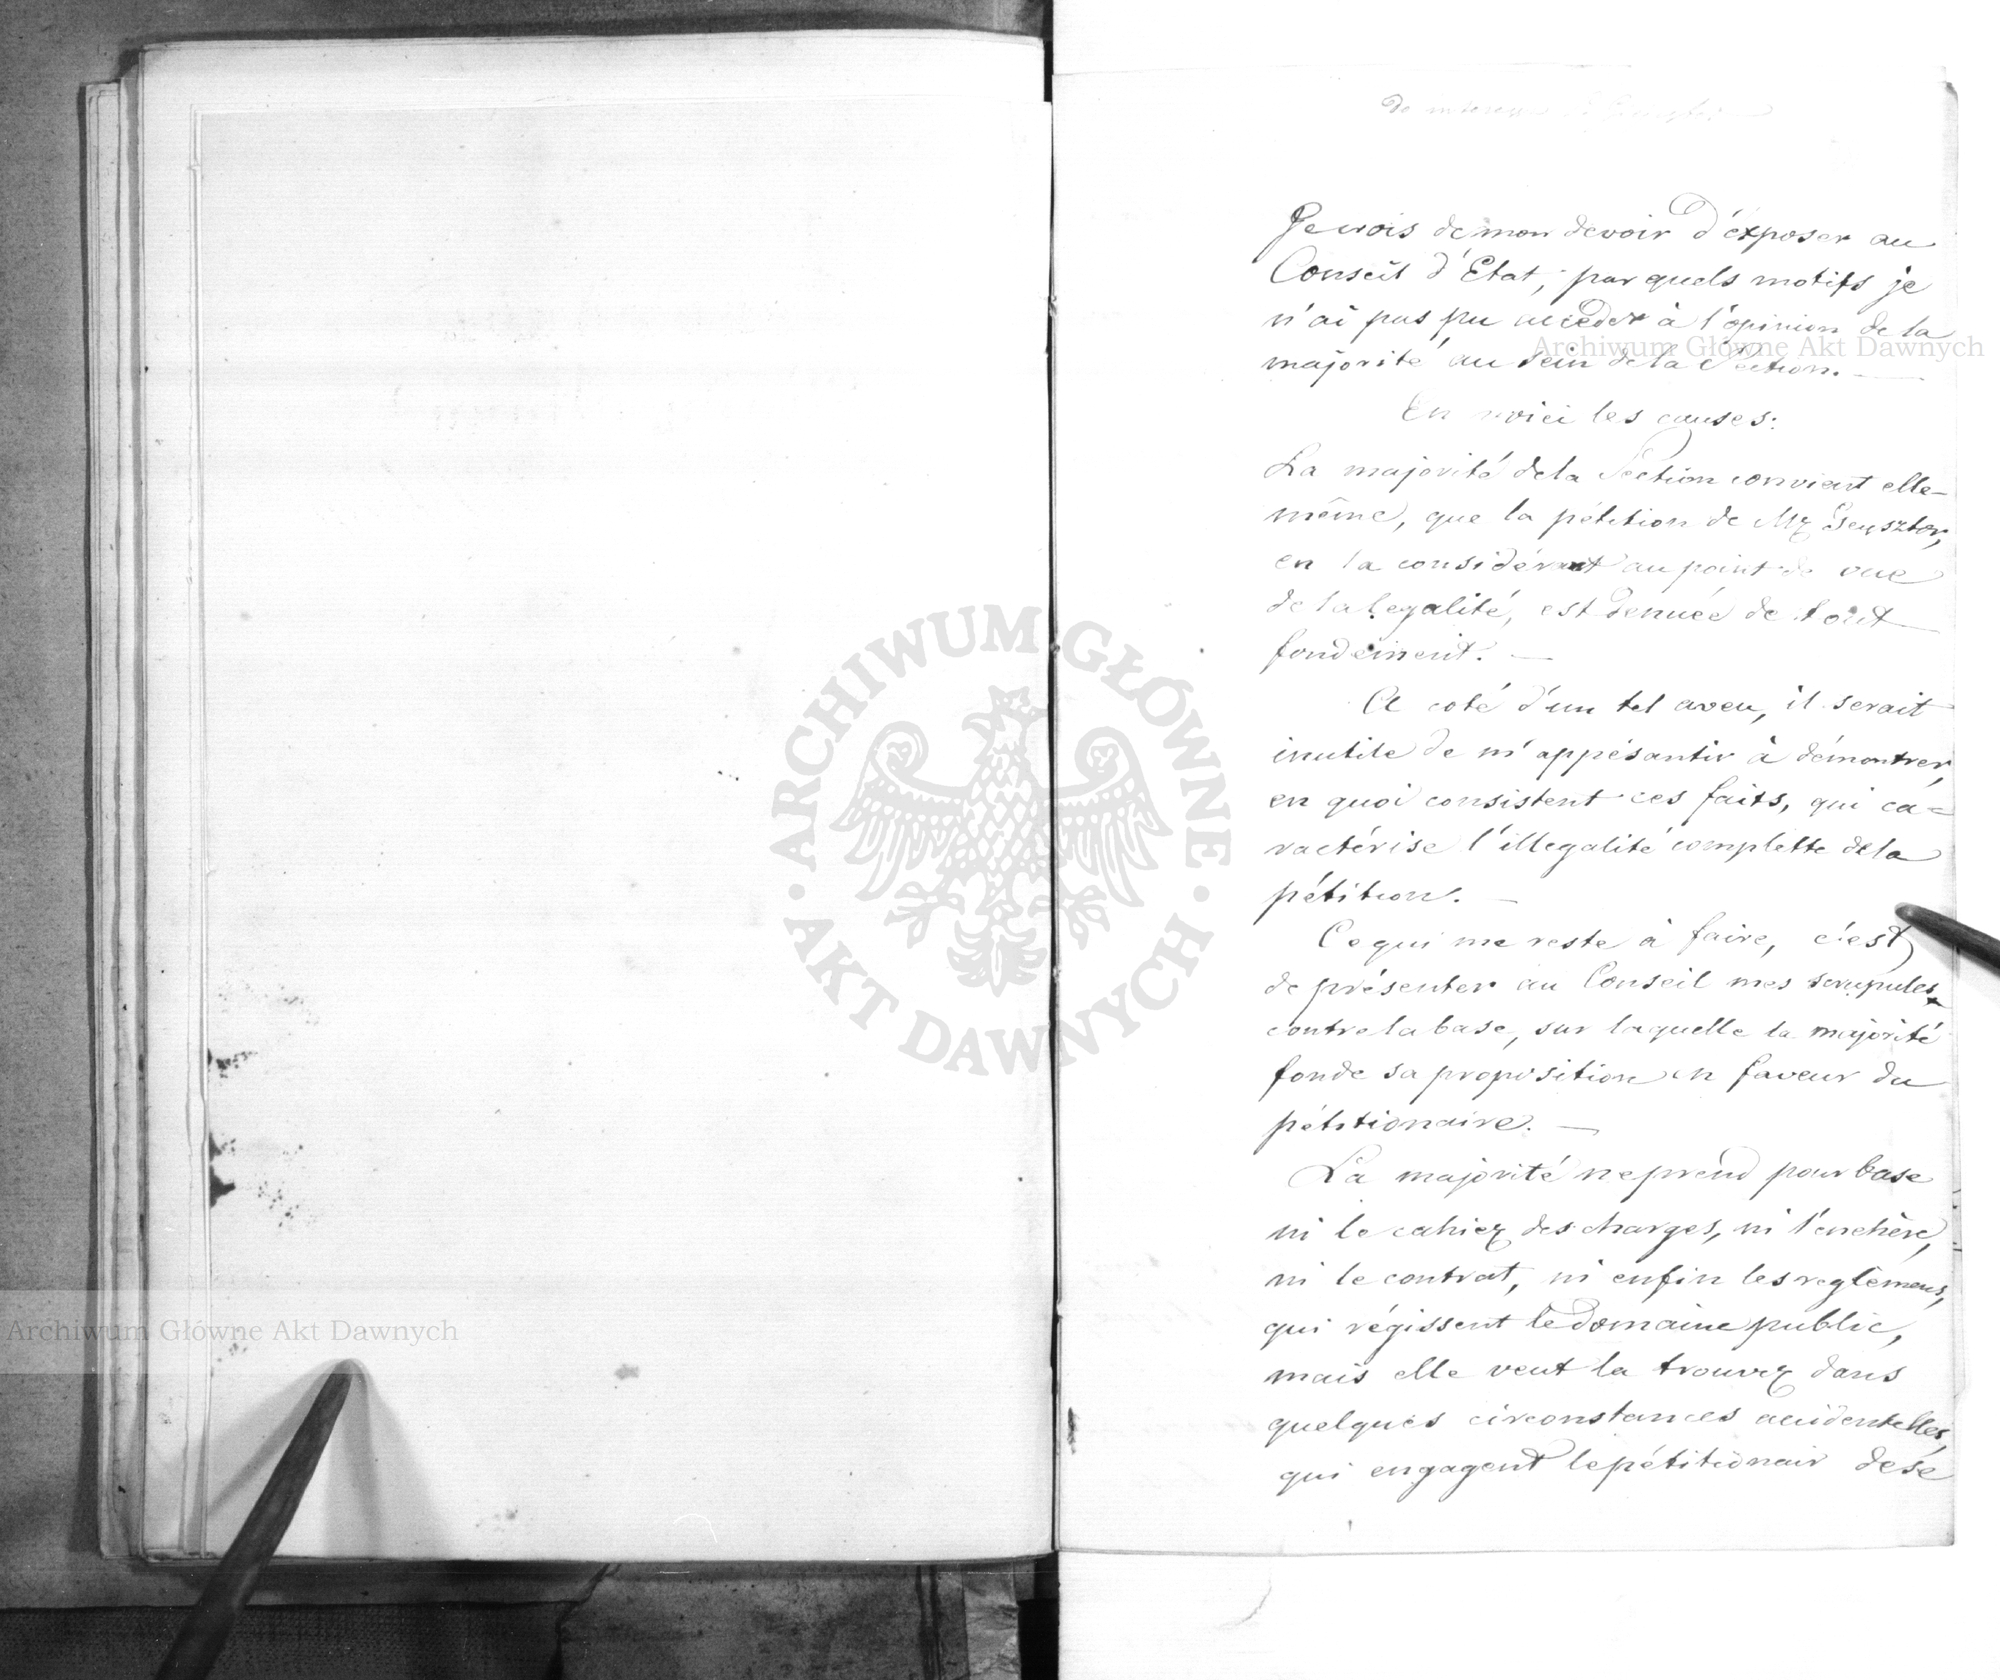 Je crois de mon devoir d'éxposer au
Conseil d'Etat, par quels motifs je
n'ai pas pu accéder à l'opinion de la
majorité au sein de la Section. —
En voici les causes:
La majorité de la Section convient elle-
même, que la pétition de Mr
en la considérant au point de vue
de la legalité, est denuée de tout
fondement. —
A coté d'un tel aveu, il serait
inutile de m'appésantir à démontrer,
en quoi consistent ces faits, qui ca=
ractérise l'illegalité complette de la
pétition. —
Ce qui me reste à faire, c'est
de présenter au Conseil mes scrupules
contre la base, sur laquelle la majorité
fonde sa proposition en faveur du
pétitionaire. —
La majorité ne prend pour base
ni le cahier des charges, ni l'enchère,
ni le contrat, ni enfin les reglémens,
qui régissent le domaine public,
mais elle veut la trouver dans
quelques circonstances accidentelles,
qui engagent le pétitionair de se
Archiwum Główne Akt Dawnych
ARCHIWUM GŁÓWNE
AKT DAWNYCH
Archiwum Główne Akt Dawnych